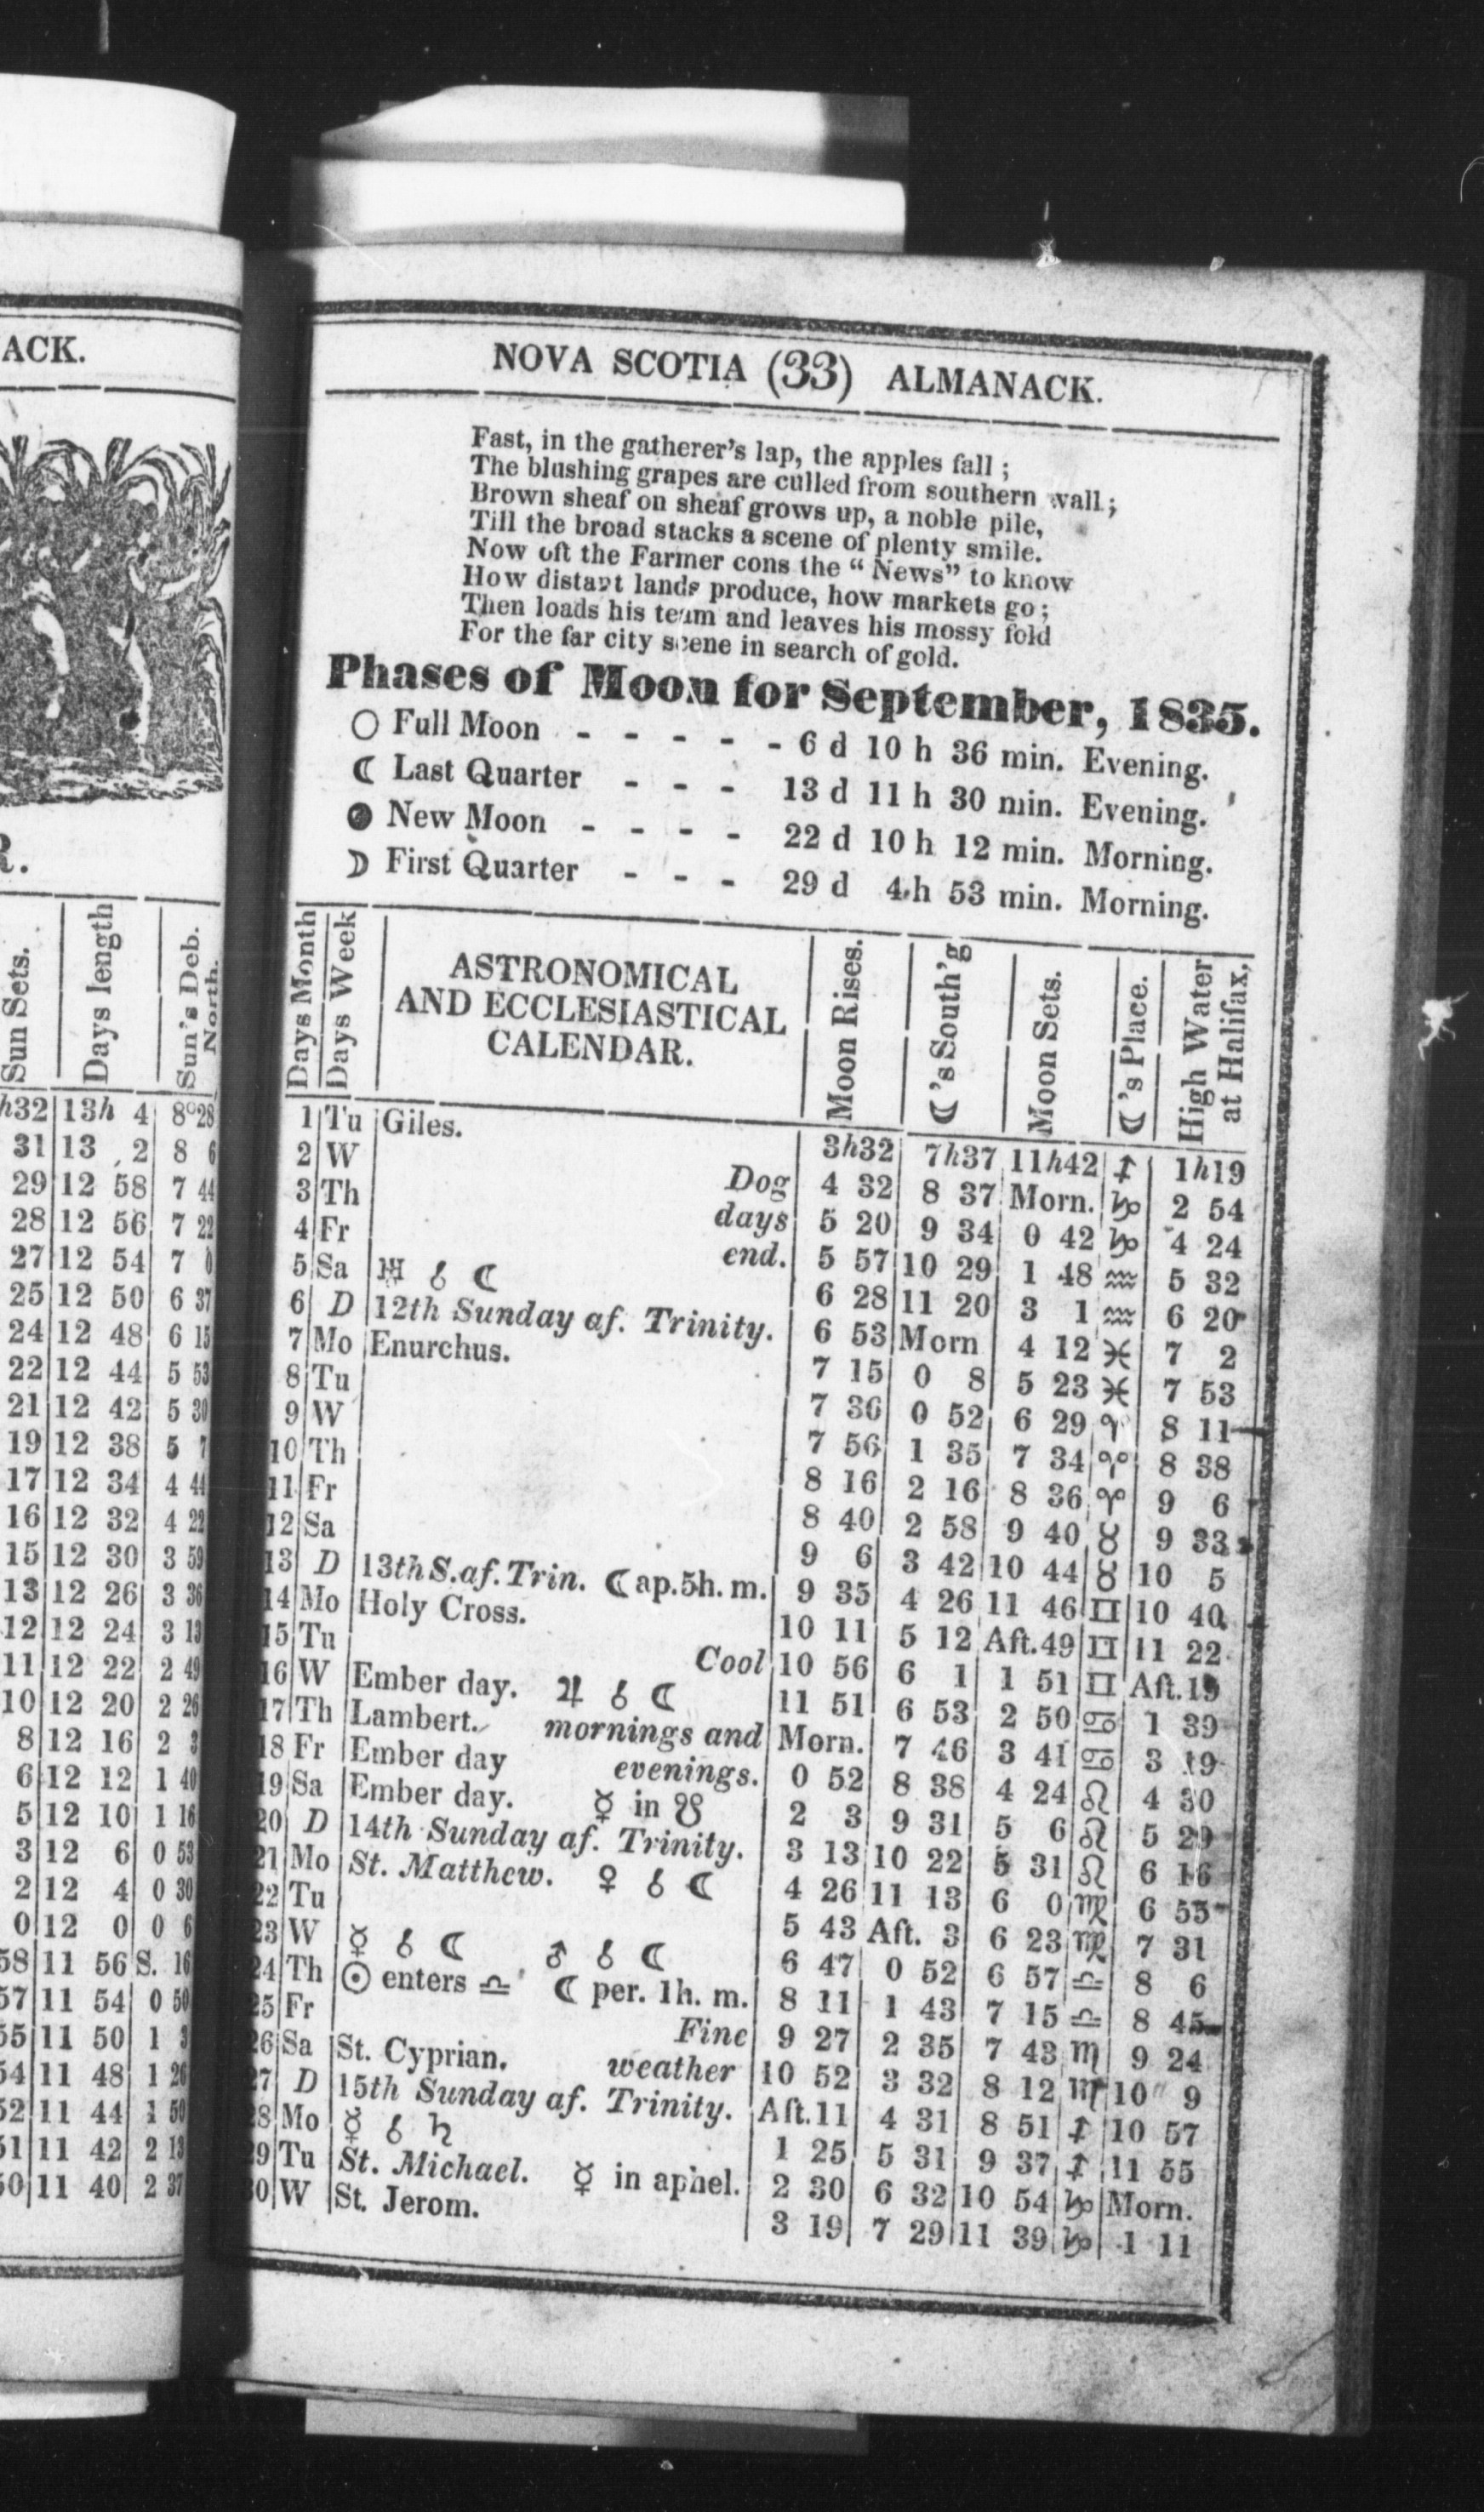 ACK.
R.
Sun Sets. Days length Sun's Deb. North.
h32 13h 4 8°28
31 13 2 8 6
29 12 58 7 44
28 12 56 7 22
27 12 54 7 0
25 12 50 6 37
24 12 48 6 15
22 12 44 5 53
21 12 42 5 30
19 12 38 5 7
17 12 34 4 44
16 12 32 4 22
15 12 30 3 59
13 12 26 3 36
12 12 24 3 13
11 12 22 2 49
10 12 20 2 26
8 12 16 2 3
6 12 12 1 40
5 12 10 1 16
3 12 6 0 53
2 12 4 0 30
0 12 0 0 6
58 11 56 S. 16
57 11 54 0 50
55 11 50 1 3
54 11 48 1 26
52 11 44 1 50
51 11 42 2 13
50 11 40 2 37
NOVA SCOTIA (33) ALMANACK.
Fast, in the gatherer's lap, the apples fall ;
The blushing grapes are culled from southern wall ;
Brown sheaf on sheaf grows up, a noble pile,
Till the broad stacks a scene of plenty smile.
Now oft the Farmer cons the “ News” to know
How distant lands produce, how markets go ;
Then loads his team and leaves his mossy fold
For the far city scene in search of gold.
Phases of Moon for September, 1835.
○ Full Moon - - - - - 6 d 10 h 36 min. Evening.
☾ Last Quarter - - - 13 d 11 h 30 min. Evening.
● New Moon - - - - 22 d 10 h 12 min. Morning.
☽ First Quarter - - - 29 d 4 h 53 min. Morning.
Days Month Days Week ASTRONOMICAL AND ECCLESIASTICAL CALENDAR. Moon Rises. ☾'s South'g Moon Sets. ☾'s Place. High Water at Halifax,
1 Tu Giles. 3h32 7h37 11h42 ♐ 1h19
2 W Dog 4 32 8 37 Morn. ♑ 2 54
3 Th days 5 20 9 34 0 42 ♑ 4 24
4 Fr end. 5 57 10 29 1 48 ♒ 5 32
5 Sa ♅ ☌ ☾ 6 28 11 20 3 1 ♒ 6 20
6 D 12th Sunday af. Trinity. 6 53 Morn 4 12 ♓ 7 2
7 Mo Enurchus. 7 15 0 8 5 23 ♓ 7 53
8 Tu 7 36 0 52 6 29 ♈ 8 11
9 W 7 56 1 35 7 34 ♈ 8 38
10 Th 8 16 2 16 8 36 ♈ 9 6
11 Fr 8 40 2 58 9 40 ♉ 9 33
12 Sa 9 6 3 42 10 44 ♉ 10 5
13 D 13th S. af. Trin. ☾ ap. 5h. m. 9 35 4 26 11 46 ♊ 10 40
14 Mo Holy Cross. 10 11 5 12 Aft.49 ♊ 11 22
15 Tu Cool 10 56 6 1 1 51 ♊ Aft.19
16 W Ember day. ♃ ☌ ☾ 11 51 6 53 2 50 ♋ 1 39
17 Th Lambert. mornings and Morn. 7 46 3 41 ♋ 3 19
18 Fr Ember day evenings. 0 52 8 38 4 24 ♌ 4 30
19 Sa Ember day. ☿ in ☋ 2 3 9 31 5 6 ♌ 5 29
20 D 14th Sunday af. Trinity. 3 13 10 22 5 31 ♌ 6 16
21 Mo St. Matthew. ♀ ☌ ☾ 4 26 11 13 6 0 ♍ 6 55
22 Tu 5 43 Aft. 3 6 23 ♍ 7 31
23 W ☿ ☌ ☾ ♂ ☌ ☾ 6 47 0 52 6 57 ♎ 8 6
24 Th ☉ enters ♎ ☾ per. 1h. m. 8 11 1 43 7 15 ♎ 8 45
25 Fr Fine 9 27 2 35 7 43 ♏ 9 24
26 Sa St. Cyprian. weather 10 52 3 32 8 12 ♏ 10 9
27 D 15th Sunday af. Trinity. Aft.11 4 31 8 51 ♐ 10 57
28 Mo ☿ ☌ ♄ 1 25 5 31 9 37 ♐ 11 55
29 Tu St. Michael. ☿ in aphel. 2 30 6 32 10 54 ♑ Morn.
30 W St. Jerom. 3 19 7 29 11 39 ♑ 1 11